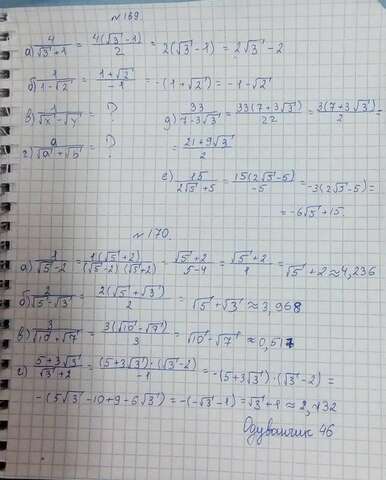 №169.
а) 4/(√3+1) = 4(√3-1)/2 = 2(√3-1) = 2√3-2
б) 1/(1-√2) = (1+√2)/-1 = -(1+√2) = -1-√2
в) 1/(√x-√y) = ?
д) 33/(7-3√3) = 33(7+3√3)/22 = 3(7+3√3)/2 =
г) a/(√a+√b) = ?
= (21+9√3)/2
е) 15/(2√5+5) = 15(2√5-5)/-5 = -3(2√5-5) =
= -6√5+15.
№170.
а) 1/(√5-2) = 1(√5+2)/((√5-2)(√5+2)) = (√5+2)/(5-4) = (√5+2)/1 = √5+2 ≈ 4,236
б) 2/(√5-√3) = 2(√5+√3)/2 = √5+√3 ≈ 3,968
в) 3/(√10+√7) = 3(√10-√7)/3 = √10-√7 ≈ 0,517
г) (5+3√3)/(√3+2) = (5+3√3)·(√3-2)/-1 = -(5+3√3)·(√3-2) =
-(5√3-10+9-6√3) = -(-√3-1) = √3+1 ≈ 2,732
Одуванчик 46